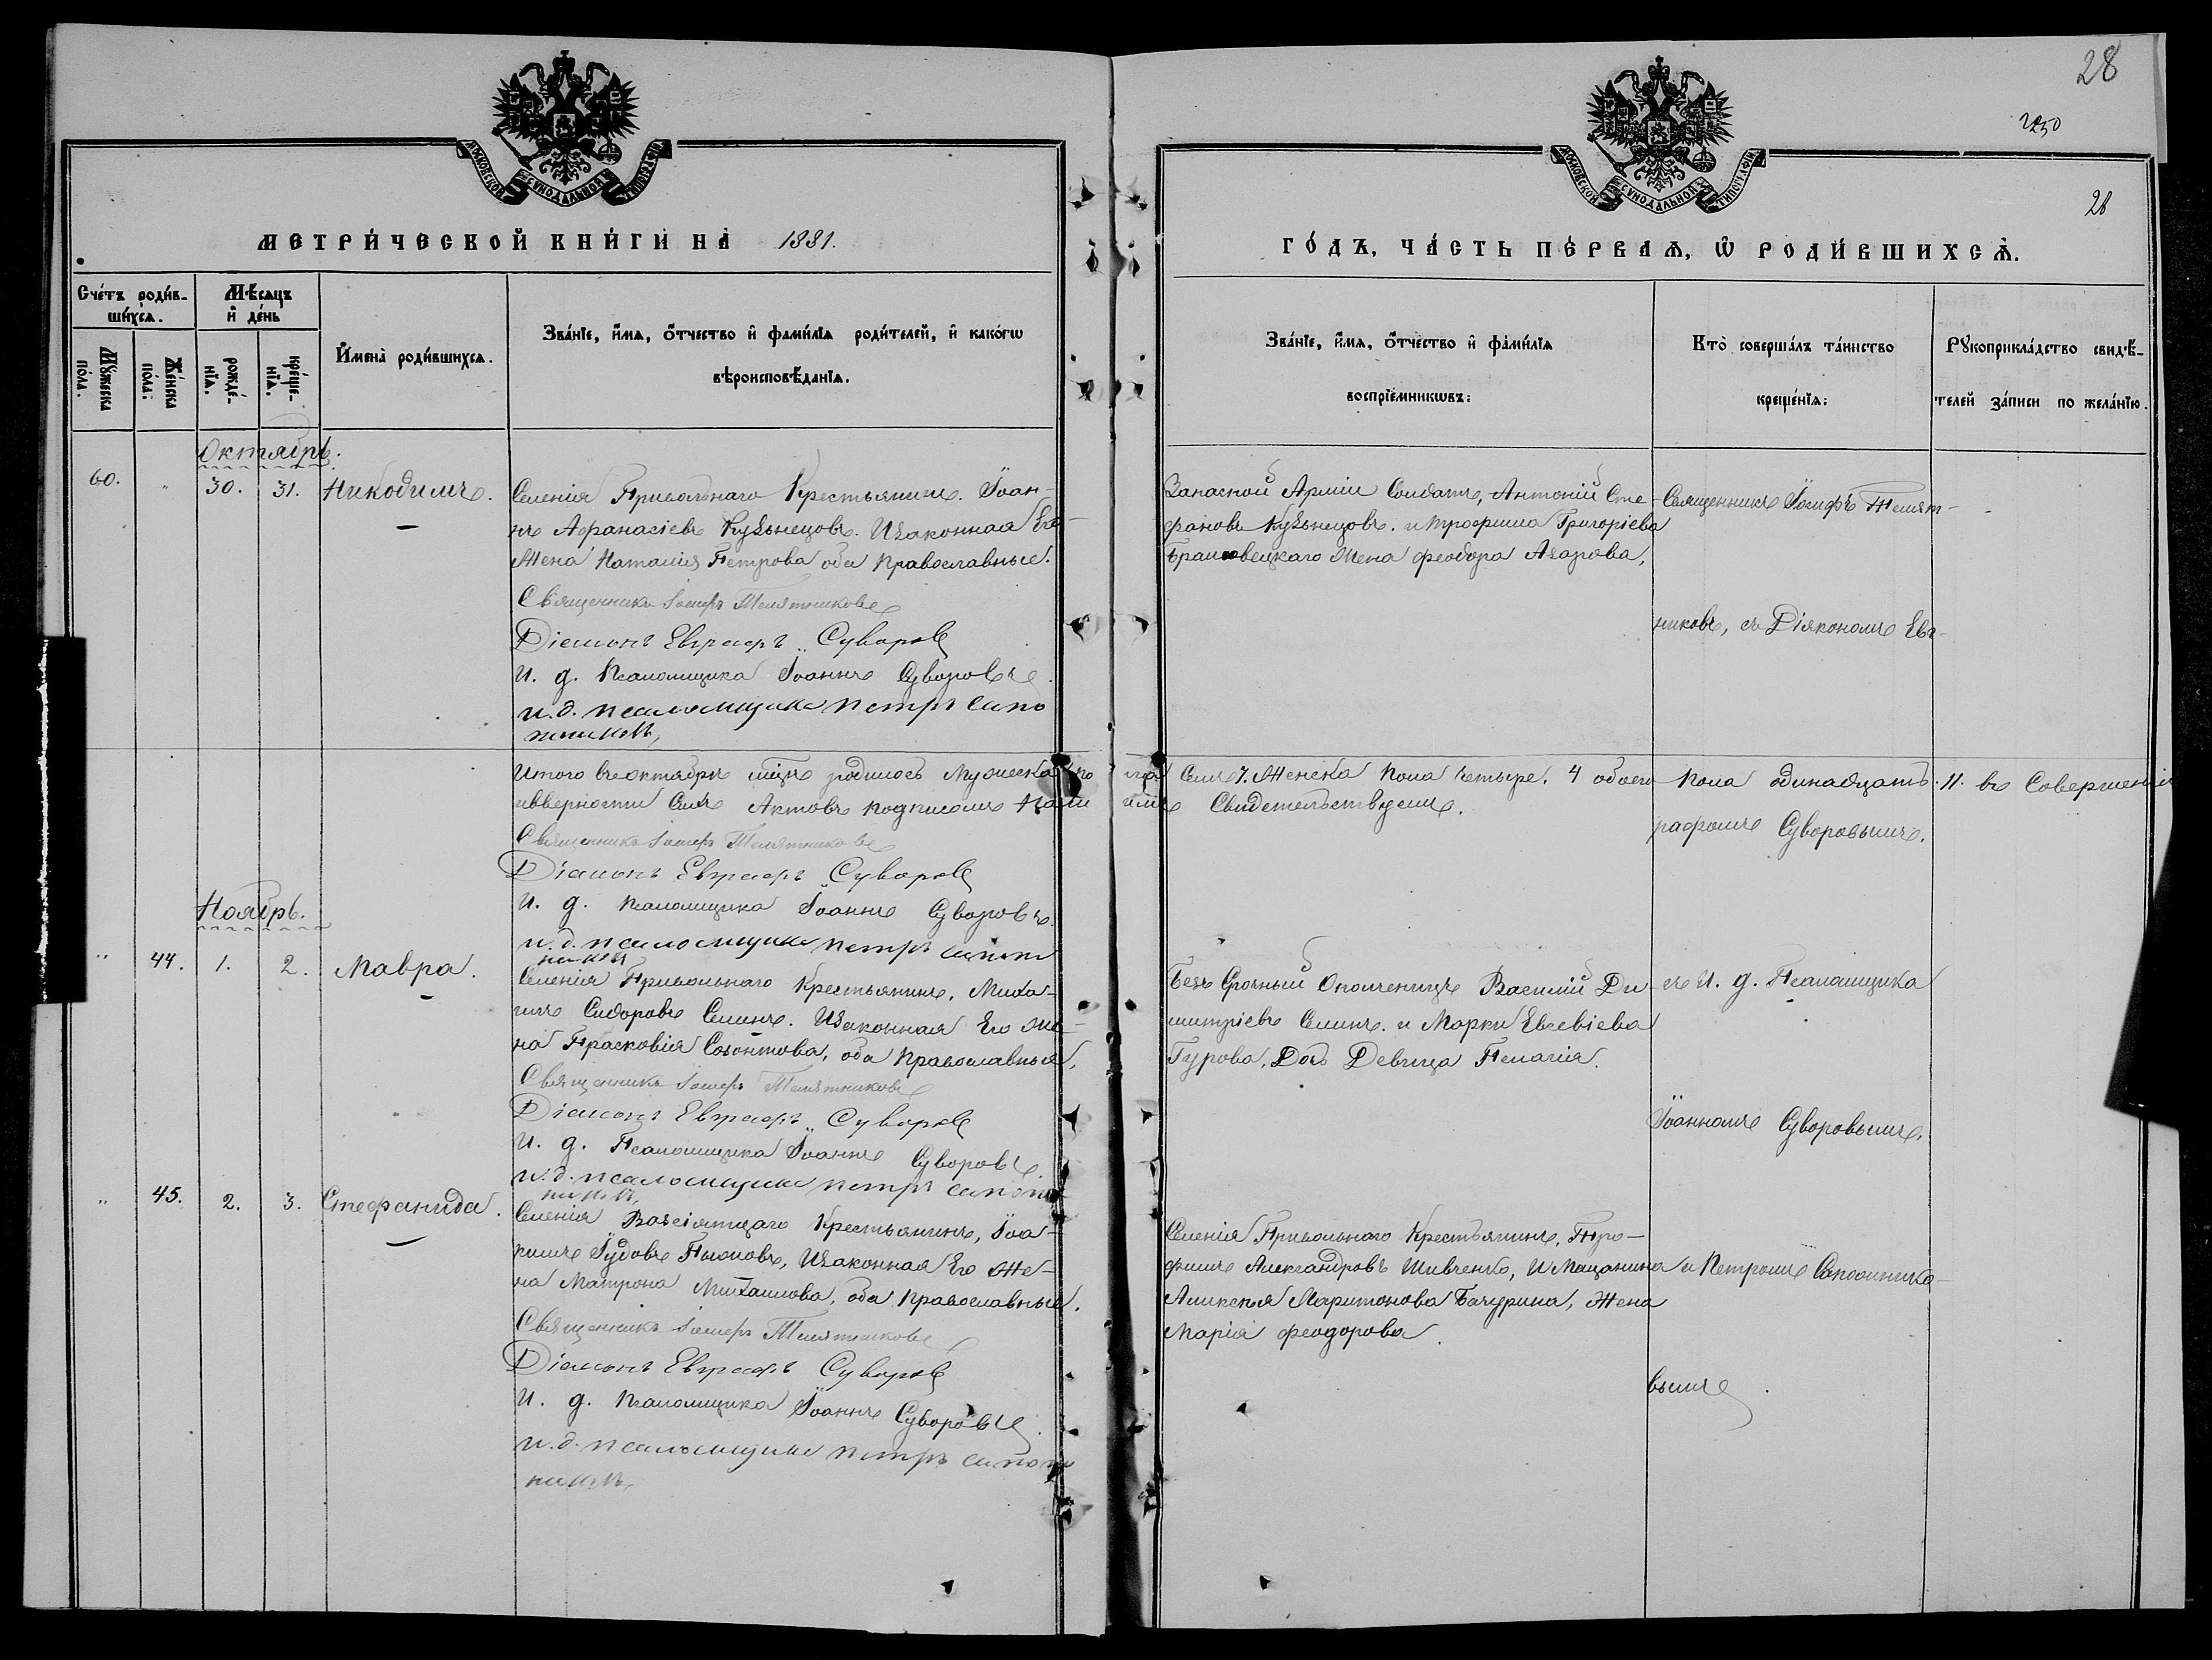 28
250
28
МОСКОВСКОЙ СУНОДАЛЬНОЙ ТИПОГРАФІИ
МОСКОВСКОЙ СУНОДАЛЬНОЙ ТИПОГРАФІИ
МЕТРИ́ЧЕСКОЙ КНИ́ГИ НА̀ 1881.
ГО́ДЪ, ЧА́СТЬ ПЕ́РВАѦ, Ѡ҆ РОДИ́ВШИХСѦ.
Сче́тъ роди́в-
ши́хсѧ.
Мѣ́сѧцъ
и҆ де́нь
Мꙋ́жеска
по́ла.
Же́нска
по́ла.
рожде́-
нїѧ.
креще́-
нїѧ.
И҆мена̀ роди́вшихсѧ.
Зва́нїе, и҆́мѧ, ѻ҆́тчество и҆ фами́лїѧ роди́телей, и҆ како́гѡ
вѣроисповѣ́данїѧ.
Зва́нїе, и҆́мѧ, ѻ҆́тчество и҆ фами́лїѧ
воспрїе́мникѡвъ:
Кто̀ соверша́лъ та́инство
креще́нїѧ:
Рꙋкоприкла́дство свидѣ́-
телей за́писи по жела́нїю.
Октябрь.
60. " 30. 31. Никодимъ.
Селенія Привольнаго Крестьянинъ. Іоан-
нъ Афанасіевъ Кузьнецовъ. Изаконная Его
Жена Наталия Петрова оба Православные.
Священникъ Іосифъ Телятниковъ
Діаконъ Евграфъ Суворов
И. д. Псаломщика Іоаннъ Суворовъ.
и. д. псаломщика петръ сапо
жниковъ,
Запасной Арміи Солдатъ, Антоній Сте-
фановъ Кузьнецовъ. и Трофима Григоріева
Жена феодора Азарова,
Священникъ Іосифъ Телят-
никовъ, съ Діякономъ Евг-
Итого въ октябрѣ мцѣ родилось Мужеска по ла Сем 7. Женска Пола четыре. 4 обоего Пола одинадцать. 11. въ Совершеніи
ивверности Сихъ Актовъ подписомъ Наши имъ Свидетельствуемъ.
рафомъ Суворовымъ.
Священникъ Іосифъ Телятниковъ
Діаконъ Евграфъ Суворов
И. д. Псаломщика Іоаннъ Суворовъ.
и. д. псаломщика петръ сапож
никовъ
Ноябрь.
" 44. 1. 2. Мавра.
Селенія Привольнаго Крестьянинъ, Миха-
илъ Сидоровъ Селинъ. Изаконная Его Же-
на Прасковія Созонтова, оба Православныя,
Священникъ Іосифъ Телятниковъ
Діаконъ Евграфъ Суворов
И. д. Псаломщика Іоаннъ Суворовъ.
и. д. псаломщика петръ сапож
никовъ,
Безъ Срочный Ополченицъ Василий Ди-
митріевъ Селинъ. и Марки Евсевіева
Гурова, Дочь Девица Пелагія.
съ И. д. Псаломщика
Іоанномъ Суворовымъ,
" 45. 2. 3. Стефанида.
Селенія Крестьянинъ, Іоа-
кимъ Іудовъ Изаконная Его Же-
на Матрона Михаилова, оба Православные.
Священникъ Іосифъ Телятниковъ
Діаконъ Евграфъ Суворов
И. д. Псаломщика Іоаннъ Суворовъ.
и. д. псаломщика петръ сапож
никовъ,
Селенія Привольнаго Крестьянинъ, Тро-
фимъ Александровъ Шивченко, и Мещанина
Алексея Харитонова Бачурина, Жена
Марія феодорова.
и Петромъ Сапожнико-
вымъ.